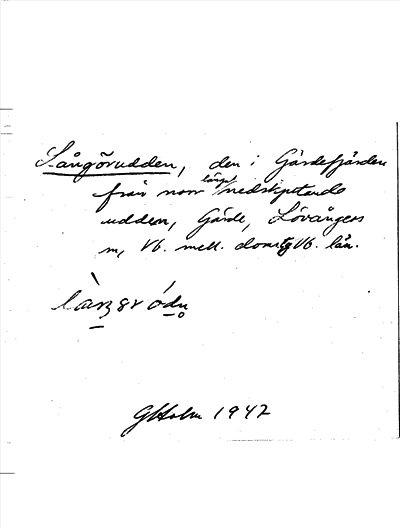 Långörudden, den i Gärdefjärden
från norr långt nedskjutande
udden, Gärde, Lövångers
sn, Vb. mell. doms. Vb. län.
GHolm 1942